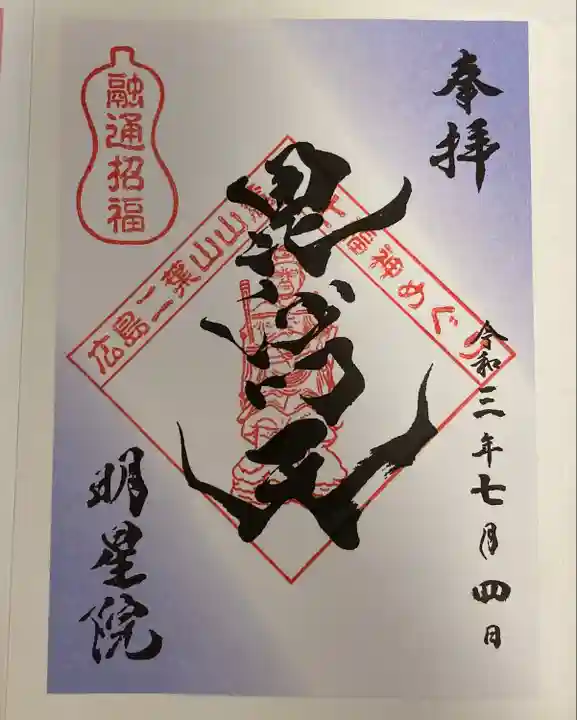 奉拝
令和三年七月四日
毘沙門天
広島二葉山山麓七福神めぐり
融通招福
明星院